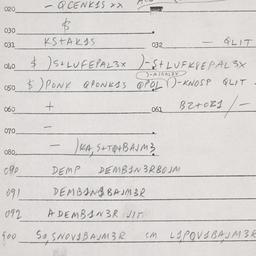 020 - QCENKIS xx
030 $
031 KS+AKIS 032 - QLIT
040 $ )S+LUFEPAL3X )-S+LUFKPEPAL3X
050 $ )PONK QPONKIS QPOL ()-KNOSP QLIT
060 + 061 B2+0E1 / -
070 -
080 - )KA, S+TQ+BAJM3
090 DEMP DEMB1N3RBOJM
091 DEMB1N1BAJM3R
092 A DEMB1N3R JIT
So, SNOV1BAJM3R CM L1POV1BAJM3R